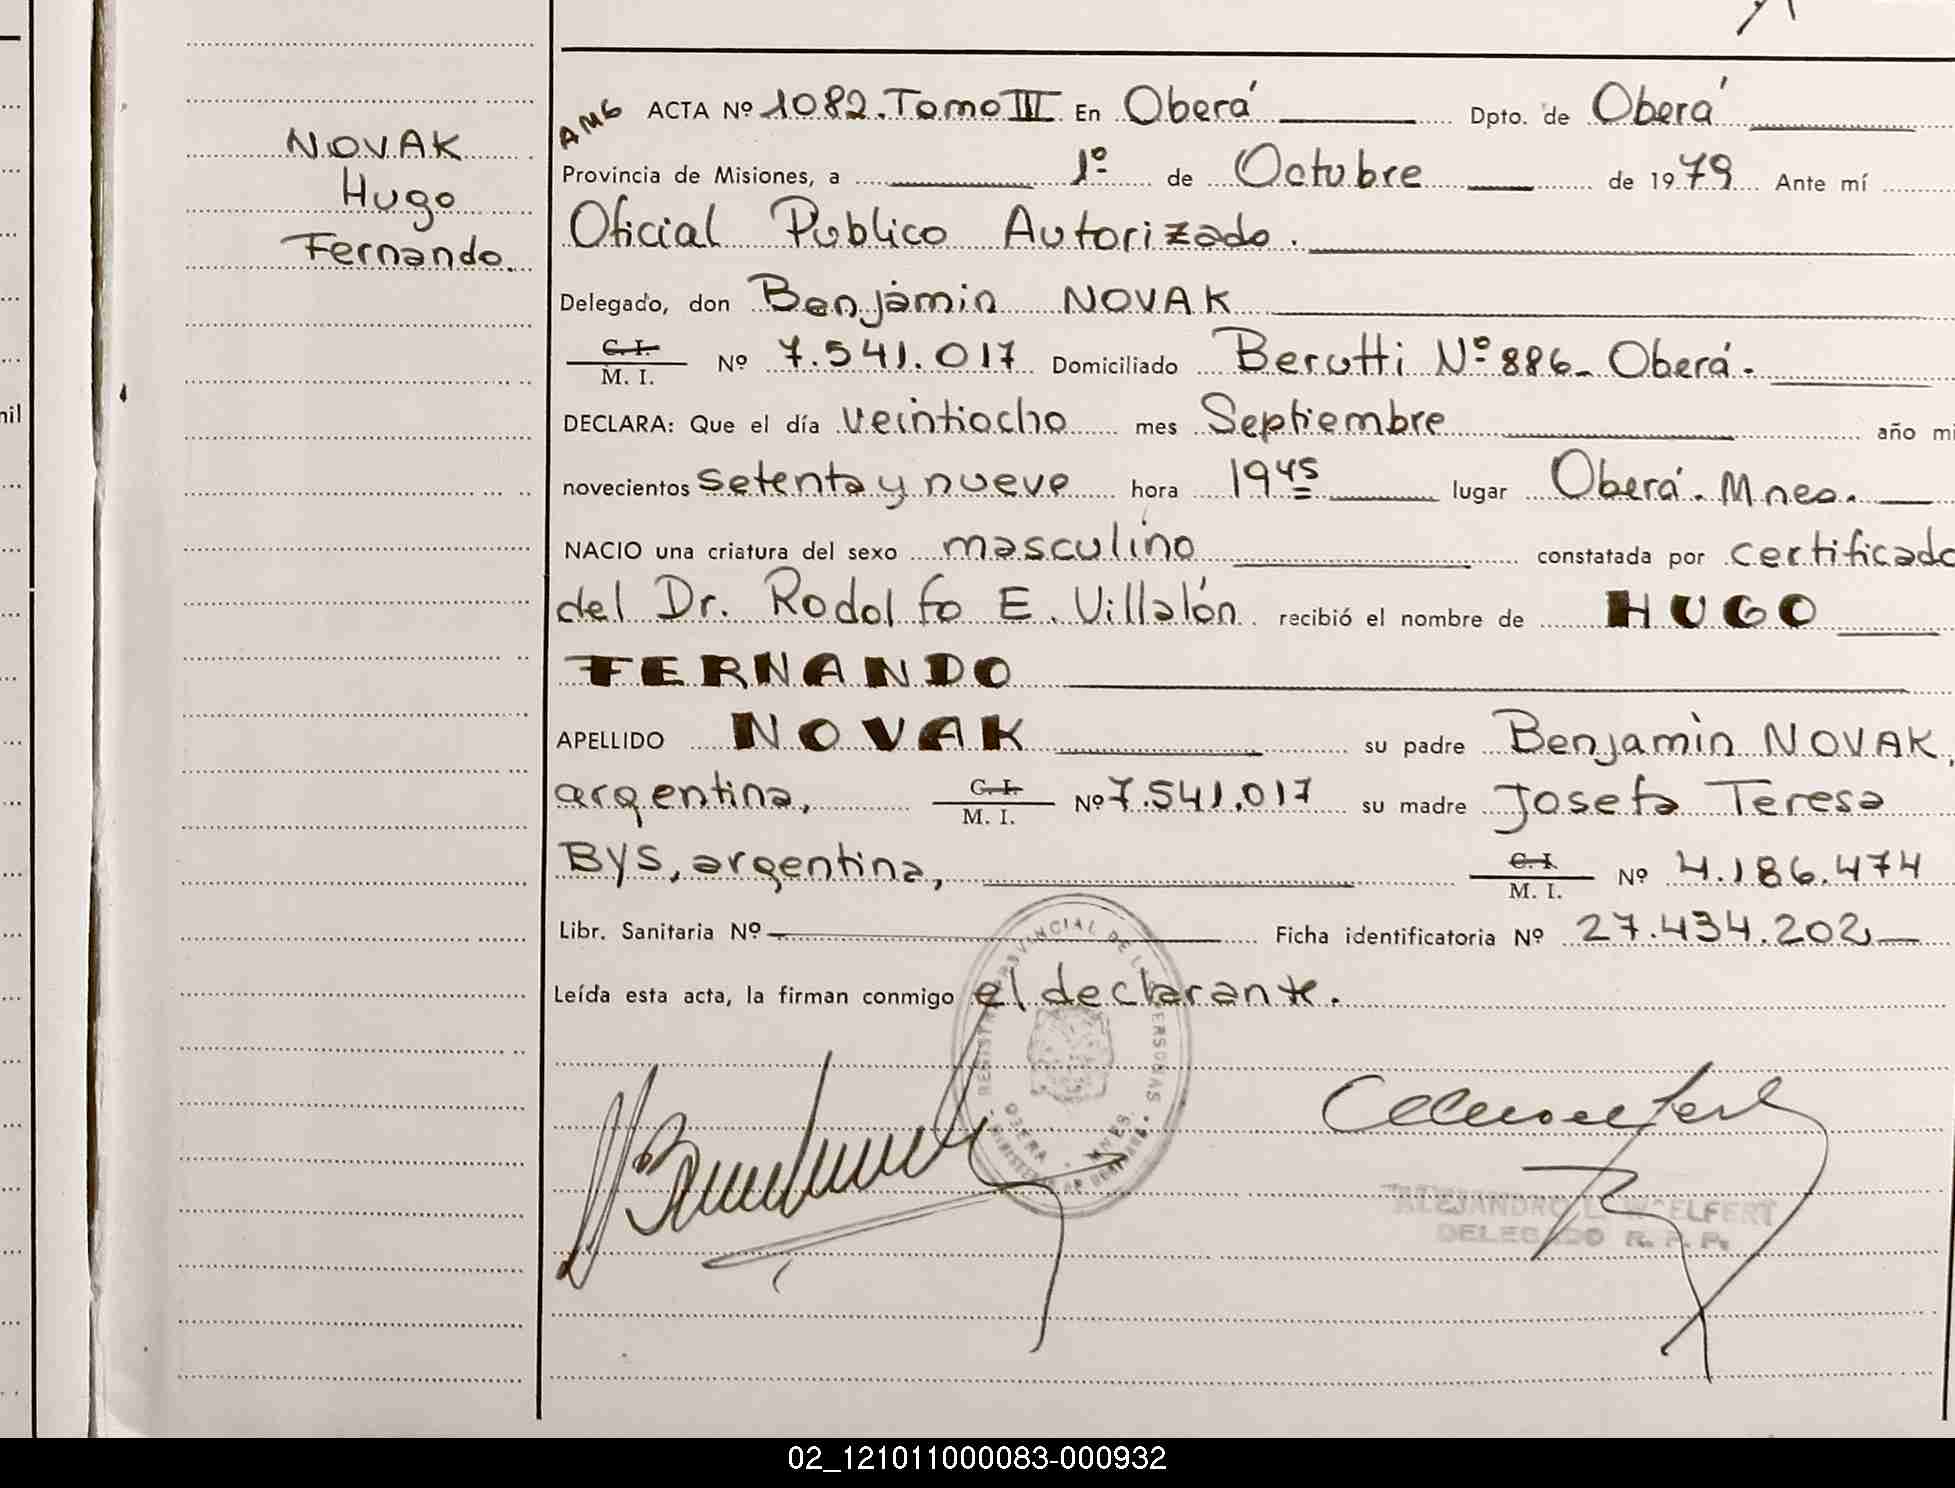 NOVAK
Hugo
Fernando.
AMG ACTA Nº 1082. Tomo III En Oberá Dpto. de Oberá
Provincia de Misiones, a 1º de Octubre de 1979 Ante mí
Oficial Público Autorizado.
Delegado, don Benjamin NOVAK
C. I. / M. I. Nº 7.541.017 Domiciliado Berutti Nº 886- Oberá.
DECLARA: Que el día veintiocho mes Septiembre año mi
novecientos setenta y nueve hora 19 45 lugar Oberá. Mnes.
NACIO una criatura del sexo masculino constatada por certificado
del Dr. Rodolfo E. Villalón recibió el nombre de HUGO
FERNANDO
APELLIDO NOVAK su padre Benjamin NOVAK,
argentina, C. I. / M. I. Nº 7.541.017 su madre Josefa Teresa
BYS, argentina, C. I. / M. I. Nº 4.186.474
Libr. Sanitaria Nº Ficha identificatoria Nº 27.434.202
Leída esta acta, la firman conmigo el declarante.
ALEJANDRO L. WOELFERT
DELEGADO R. P. P.
02_121011000083-000932